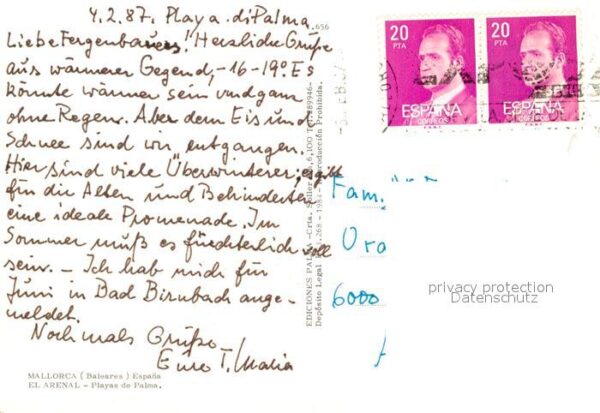 4.2.87. Playa di Palma.
Liebe Fergenbauers! Herzliche Grüße
aus wärmerer Gegend, -16-19° Es
könnte wärmer sein und ganz
ohne Regen. Aber dem Eis und
Schnee sind wir entgangen.
Hier sind viele Überwinterer; es gibt
für die Alten und Behinderten
eine ideale Promenade. Im
Sommer muß es fürchterlich voll
sein. - Ich hab mich für
Juni in Bad Birnbach ange-
meldet.
Nochmals Grüße
Eure T. Maria
MALLORCA (Baleares) España
EL ARENAL - Playas de Palma.
656
EDICIONES PALMA
Depósito Legal
Reproducción Prohibida.
20
PTA
ESPAÑA
CORREOS
20
PTA
ESPAÑA
CORREOS
Fam.
6000
privacy protection
Datenschutz